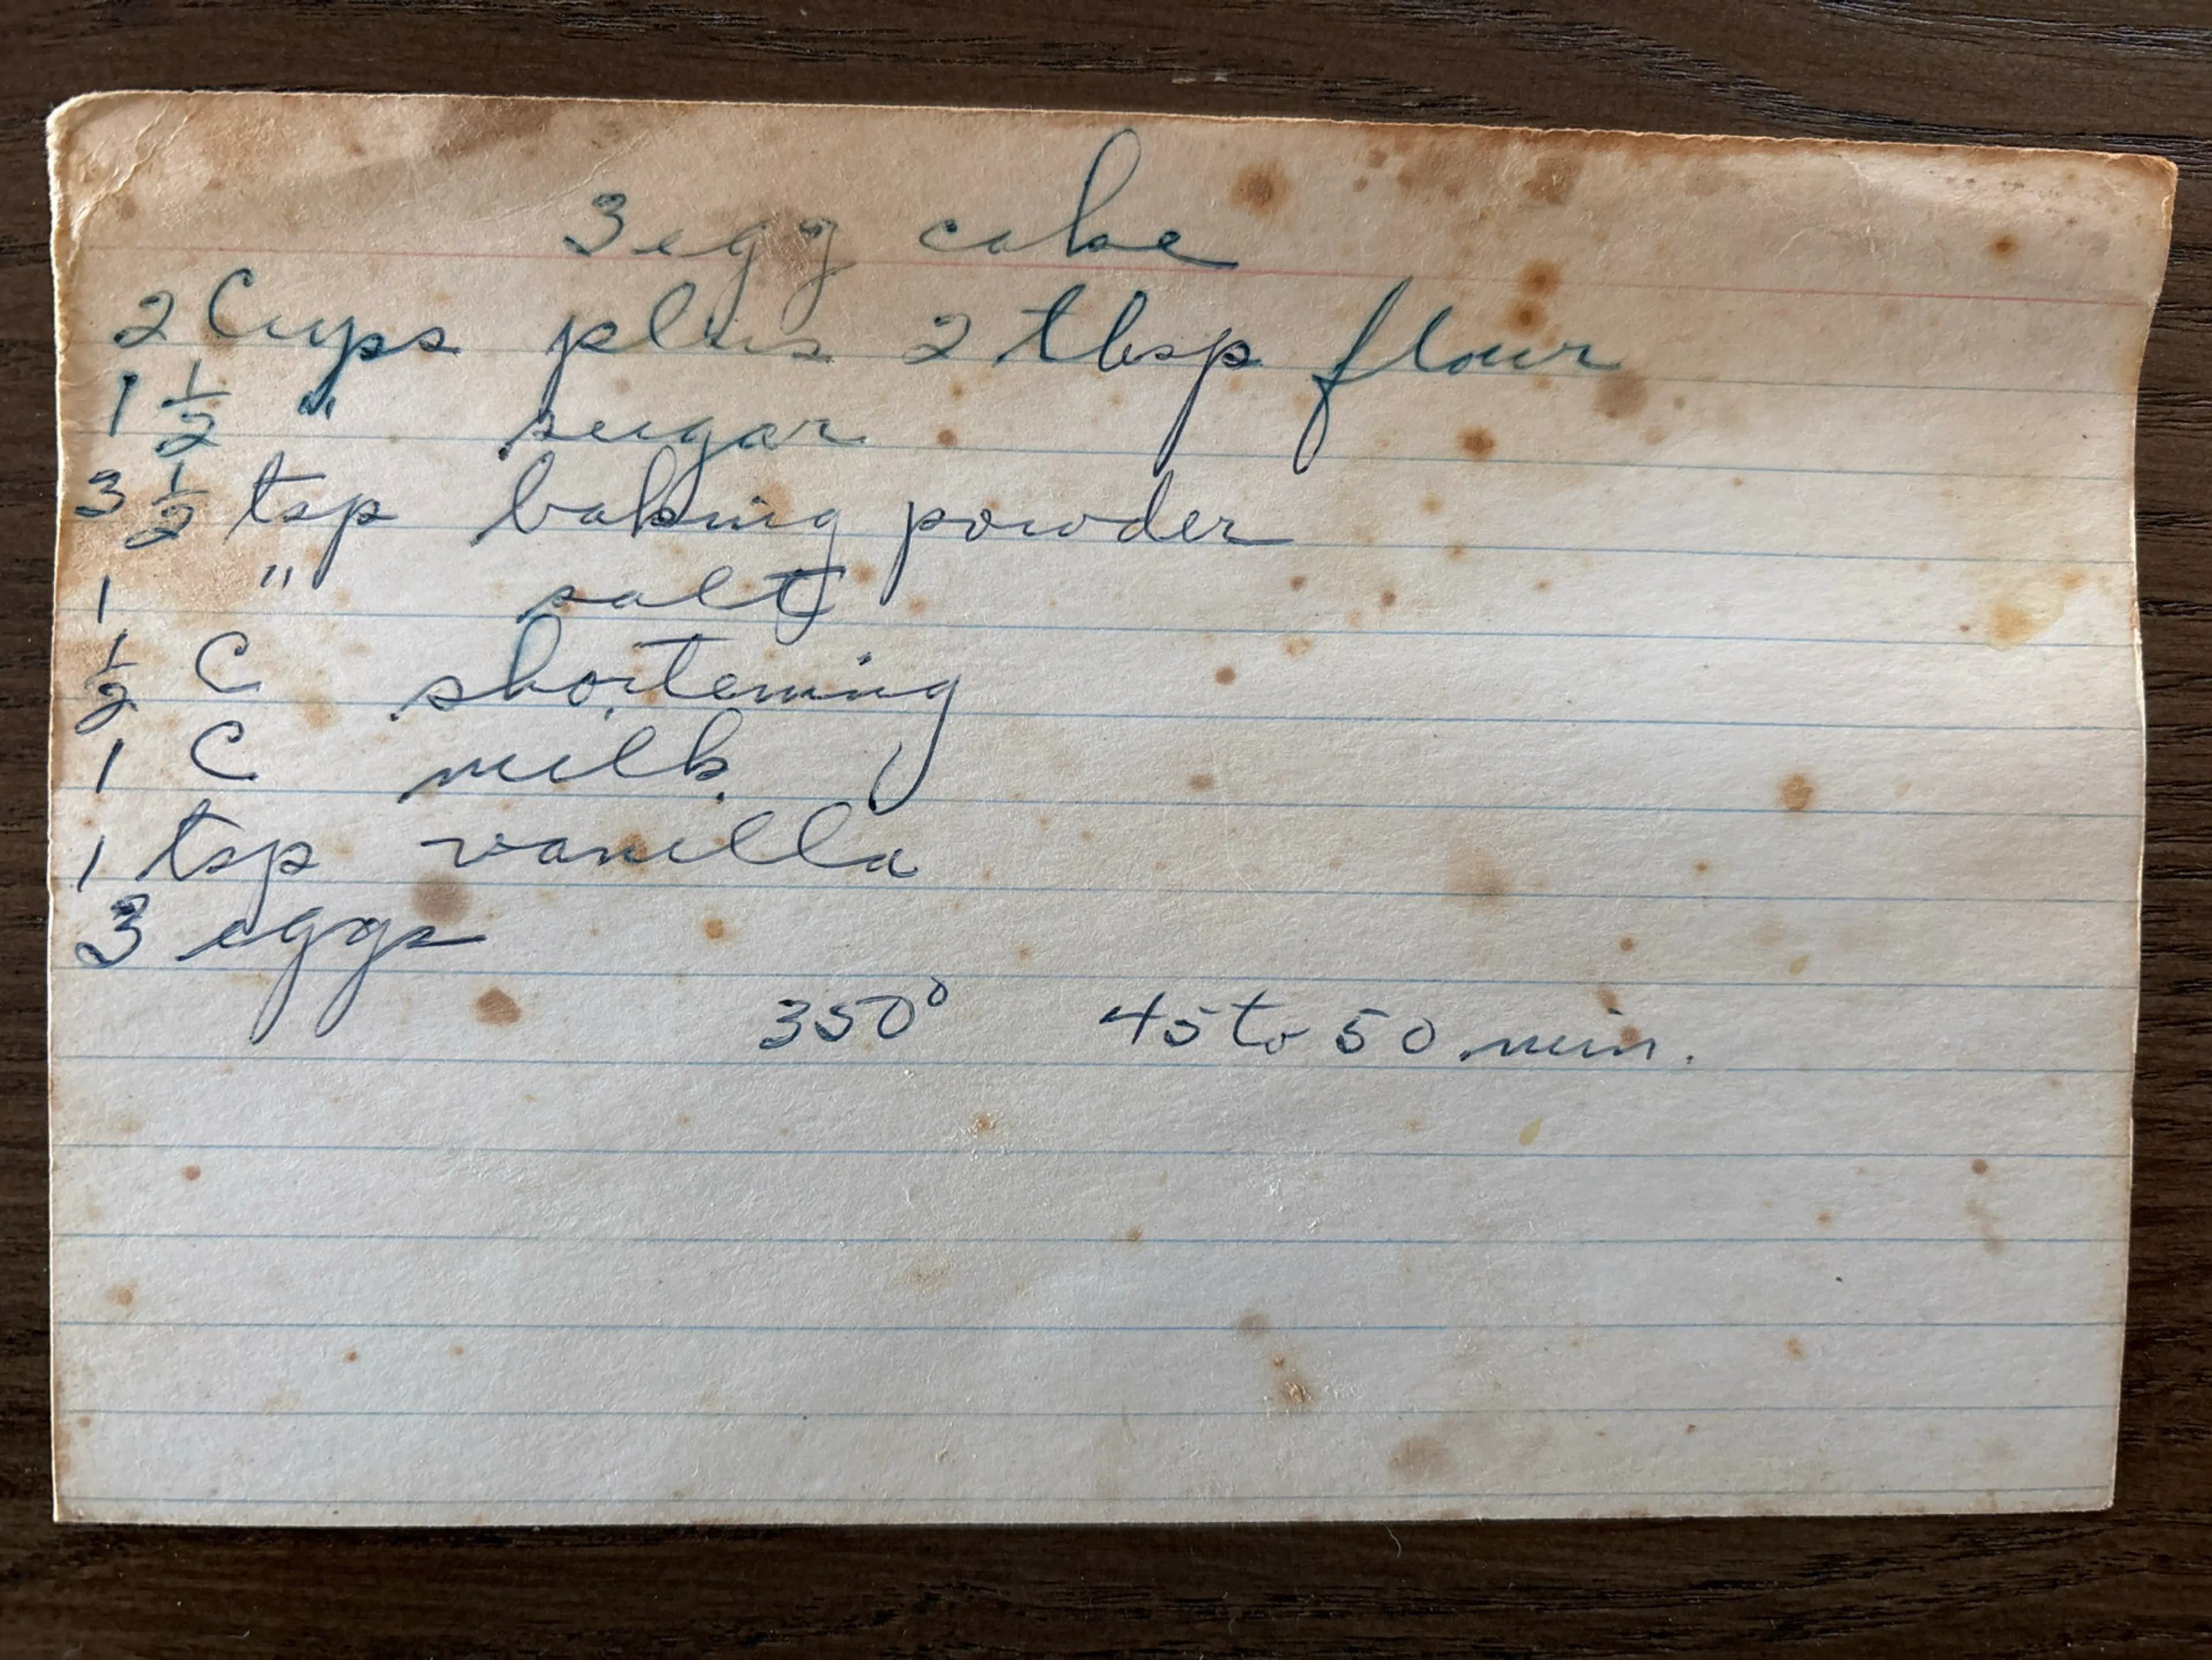 3 egg cake
2 Cups plus 2 tbsp flour
1 1/2 " sugar
3 1/2 tsp baking powder
1 " salt
1/2 C shortening
1 C milk
1 tsp vanilla
3 eggs
350° 45 to 50 min.